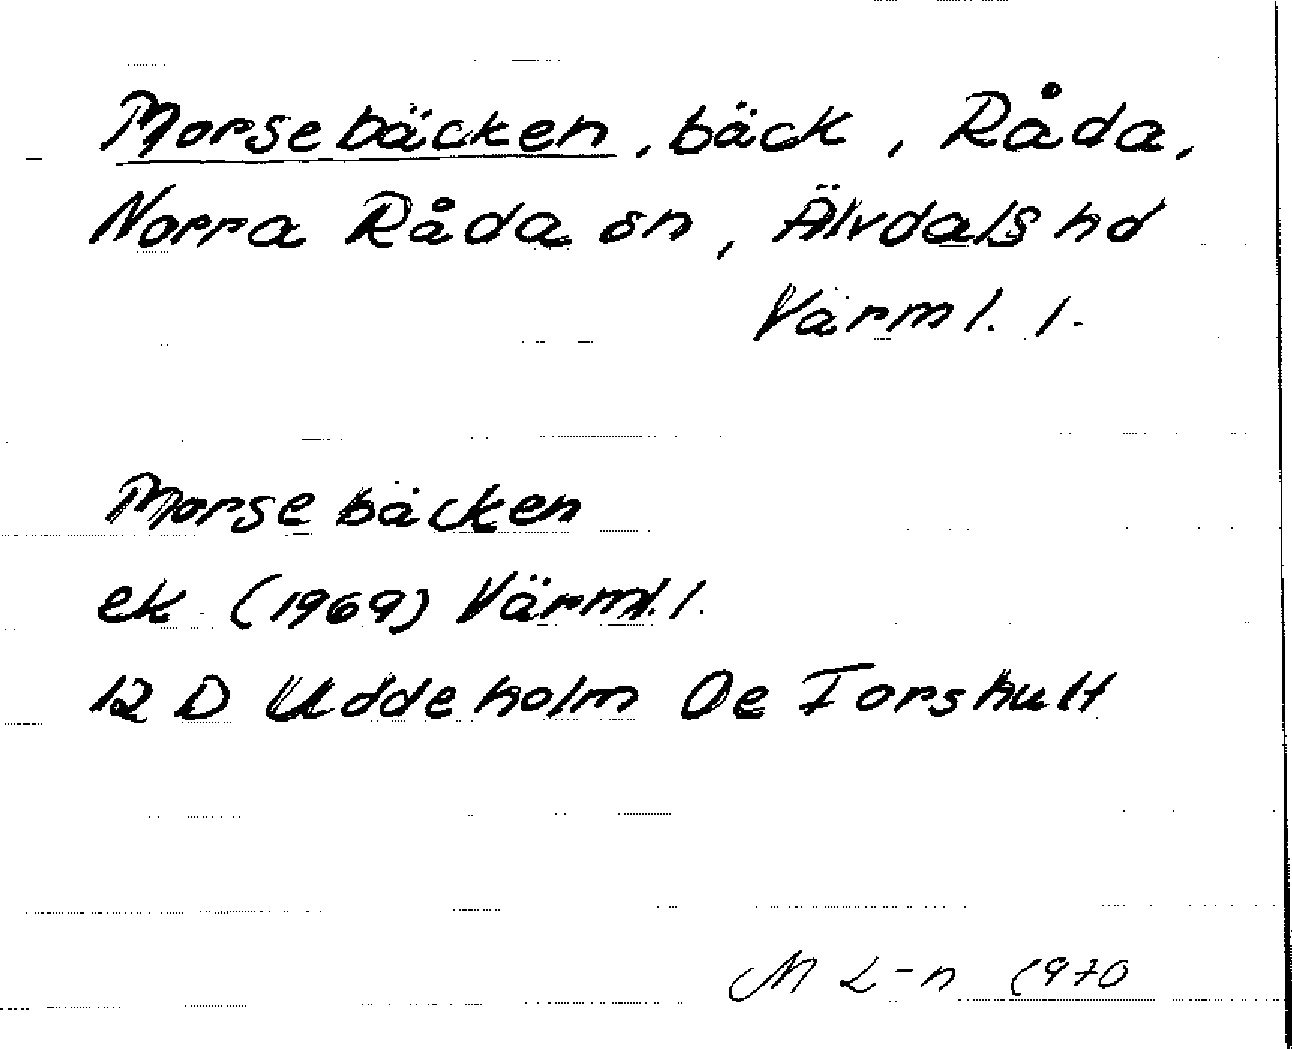 Morsebäcken, bäck, Råda,
Norra Råda sn, Älvdals hd
Värml. l.
Morsebäcken
ek (1969) Värml. l.
12 D Uddeholm Oe Forshult
M L-n 1970